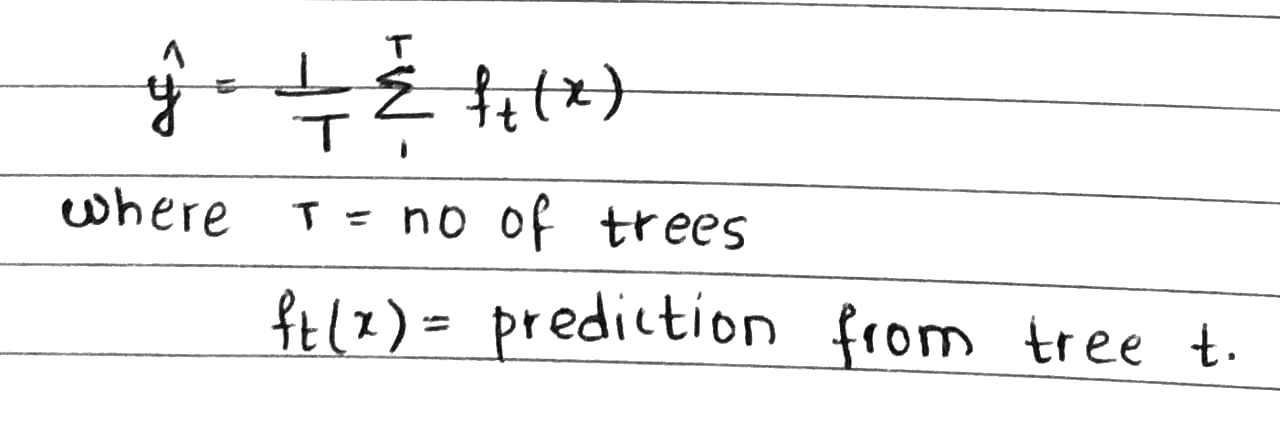 ŷ = 1/T Σ₁ᵀ fₜ(x)
where T = no of trees
fₜ(x) = prediction from tree t.